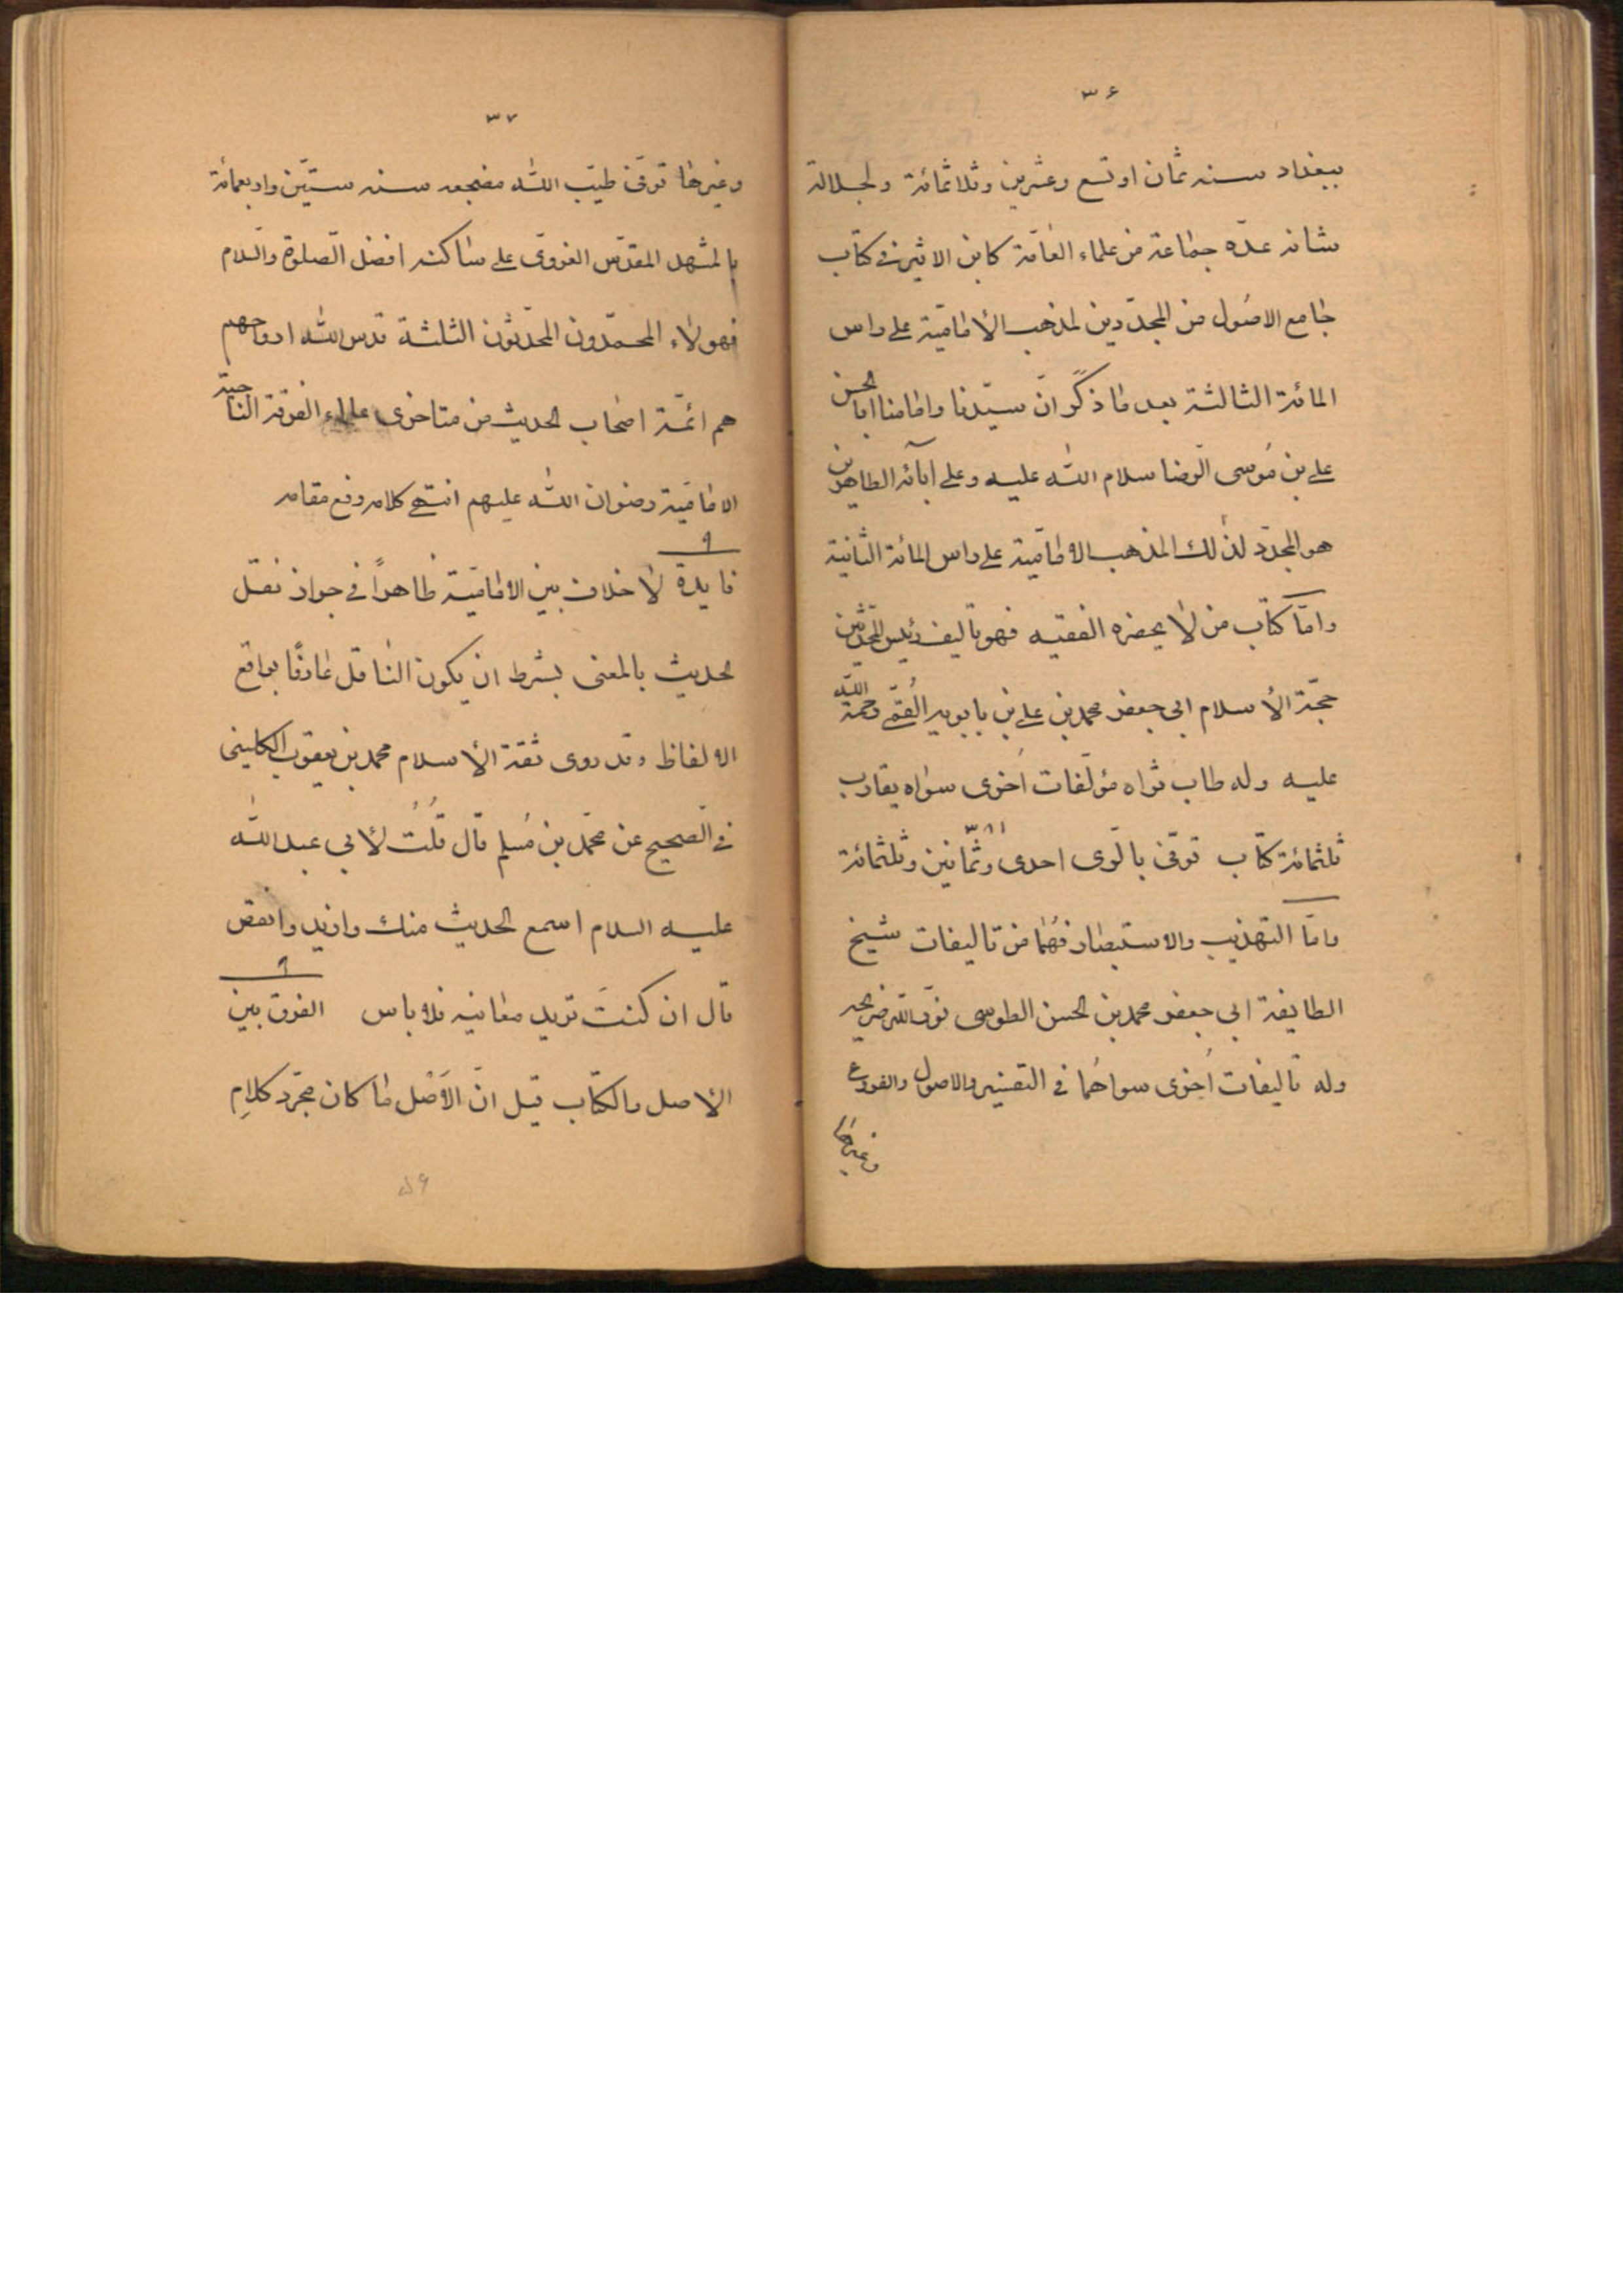 ۳۶
ببغداد سنه ثمان او تسع وعشرين وثلاثمائة ولجلالة
شانه عدّه جماعة من علماء العامّة كابن الاثير في كتاب
جامع الاصول من المجدّدين لمذهب الأماميّة على راس
المائة الثالثة بعد ما ذكر انّ سيّدنا وامامنا ابا الحسن
علي بن مُوسى الرّضا سلام اللّه عليه وعلى آبائه الطاهرين
هو المجدّد لذلك المذهب الاماميّة على راس المائة الثانية
وامّا كتاب من لا يحضره الفقيه فهو تاليف رئيس المحدّثين
حجّة الأسلام ابي جعفر محمد بن علي بن بابويه القُمّي رحمة اللّه
عليه وله طاب ثراه مؤلّفات اُخرى سواه يقارب
ثلثمائة كتاب توفّى بالرّى احدى وثمانين وثلثمائة
۳۸۱
وامّا التهذيب والاستبصار فهُما من تاليفات شيخ
الطايفة ابي جعفر محمد بن الحسن الطوسى نوّر اللّه ضريحه
وله تاليفات اُخرى سواهُما في التفسير والاصول والفروع
وغيرها
۳۷
وغيرها توفّى طيّب اللّه مضجعه سنه ستّين واربعمائة
بالمشهد المقدّس الغروى على ساكنه افضل الصّلوة والسّلام
فهولاء المحمّدون المحدّثون الثلثة قدس اللّه ارواحهم
هم ائمّة اصحاب الحديث من متاخرى علماء الفرقة الناجية
الاماميّة رضوان اللّه عليهم انتهى كلامه رفع مقامه
فايدة لا خلاف بين الاماميّة ظاهراً في جواز نقل
الحديث بالمعنى بشرط ان يكون الناقل عارفًا بواقع
الالفاظ وقد روى ثقة الأسلام محمد بن يعقوب الكلينى
في الصّحيح عن محمّد بن مُسلم قال قُلتُ لأبي عبد اللّه
عليه السلام اسمع الحديث منك وازيد وانقص
قال ان كنتَ تريد معانيه فلا باس الفرق بين
الأصل والكتاب قيل انّ الأَصْل ما كان مجرّد كلامِ